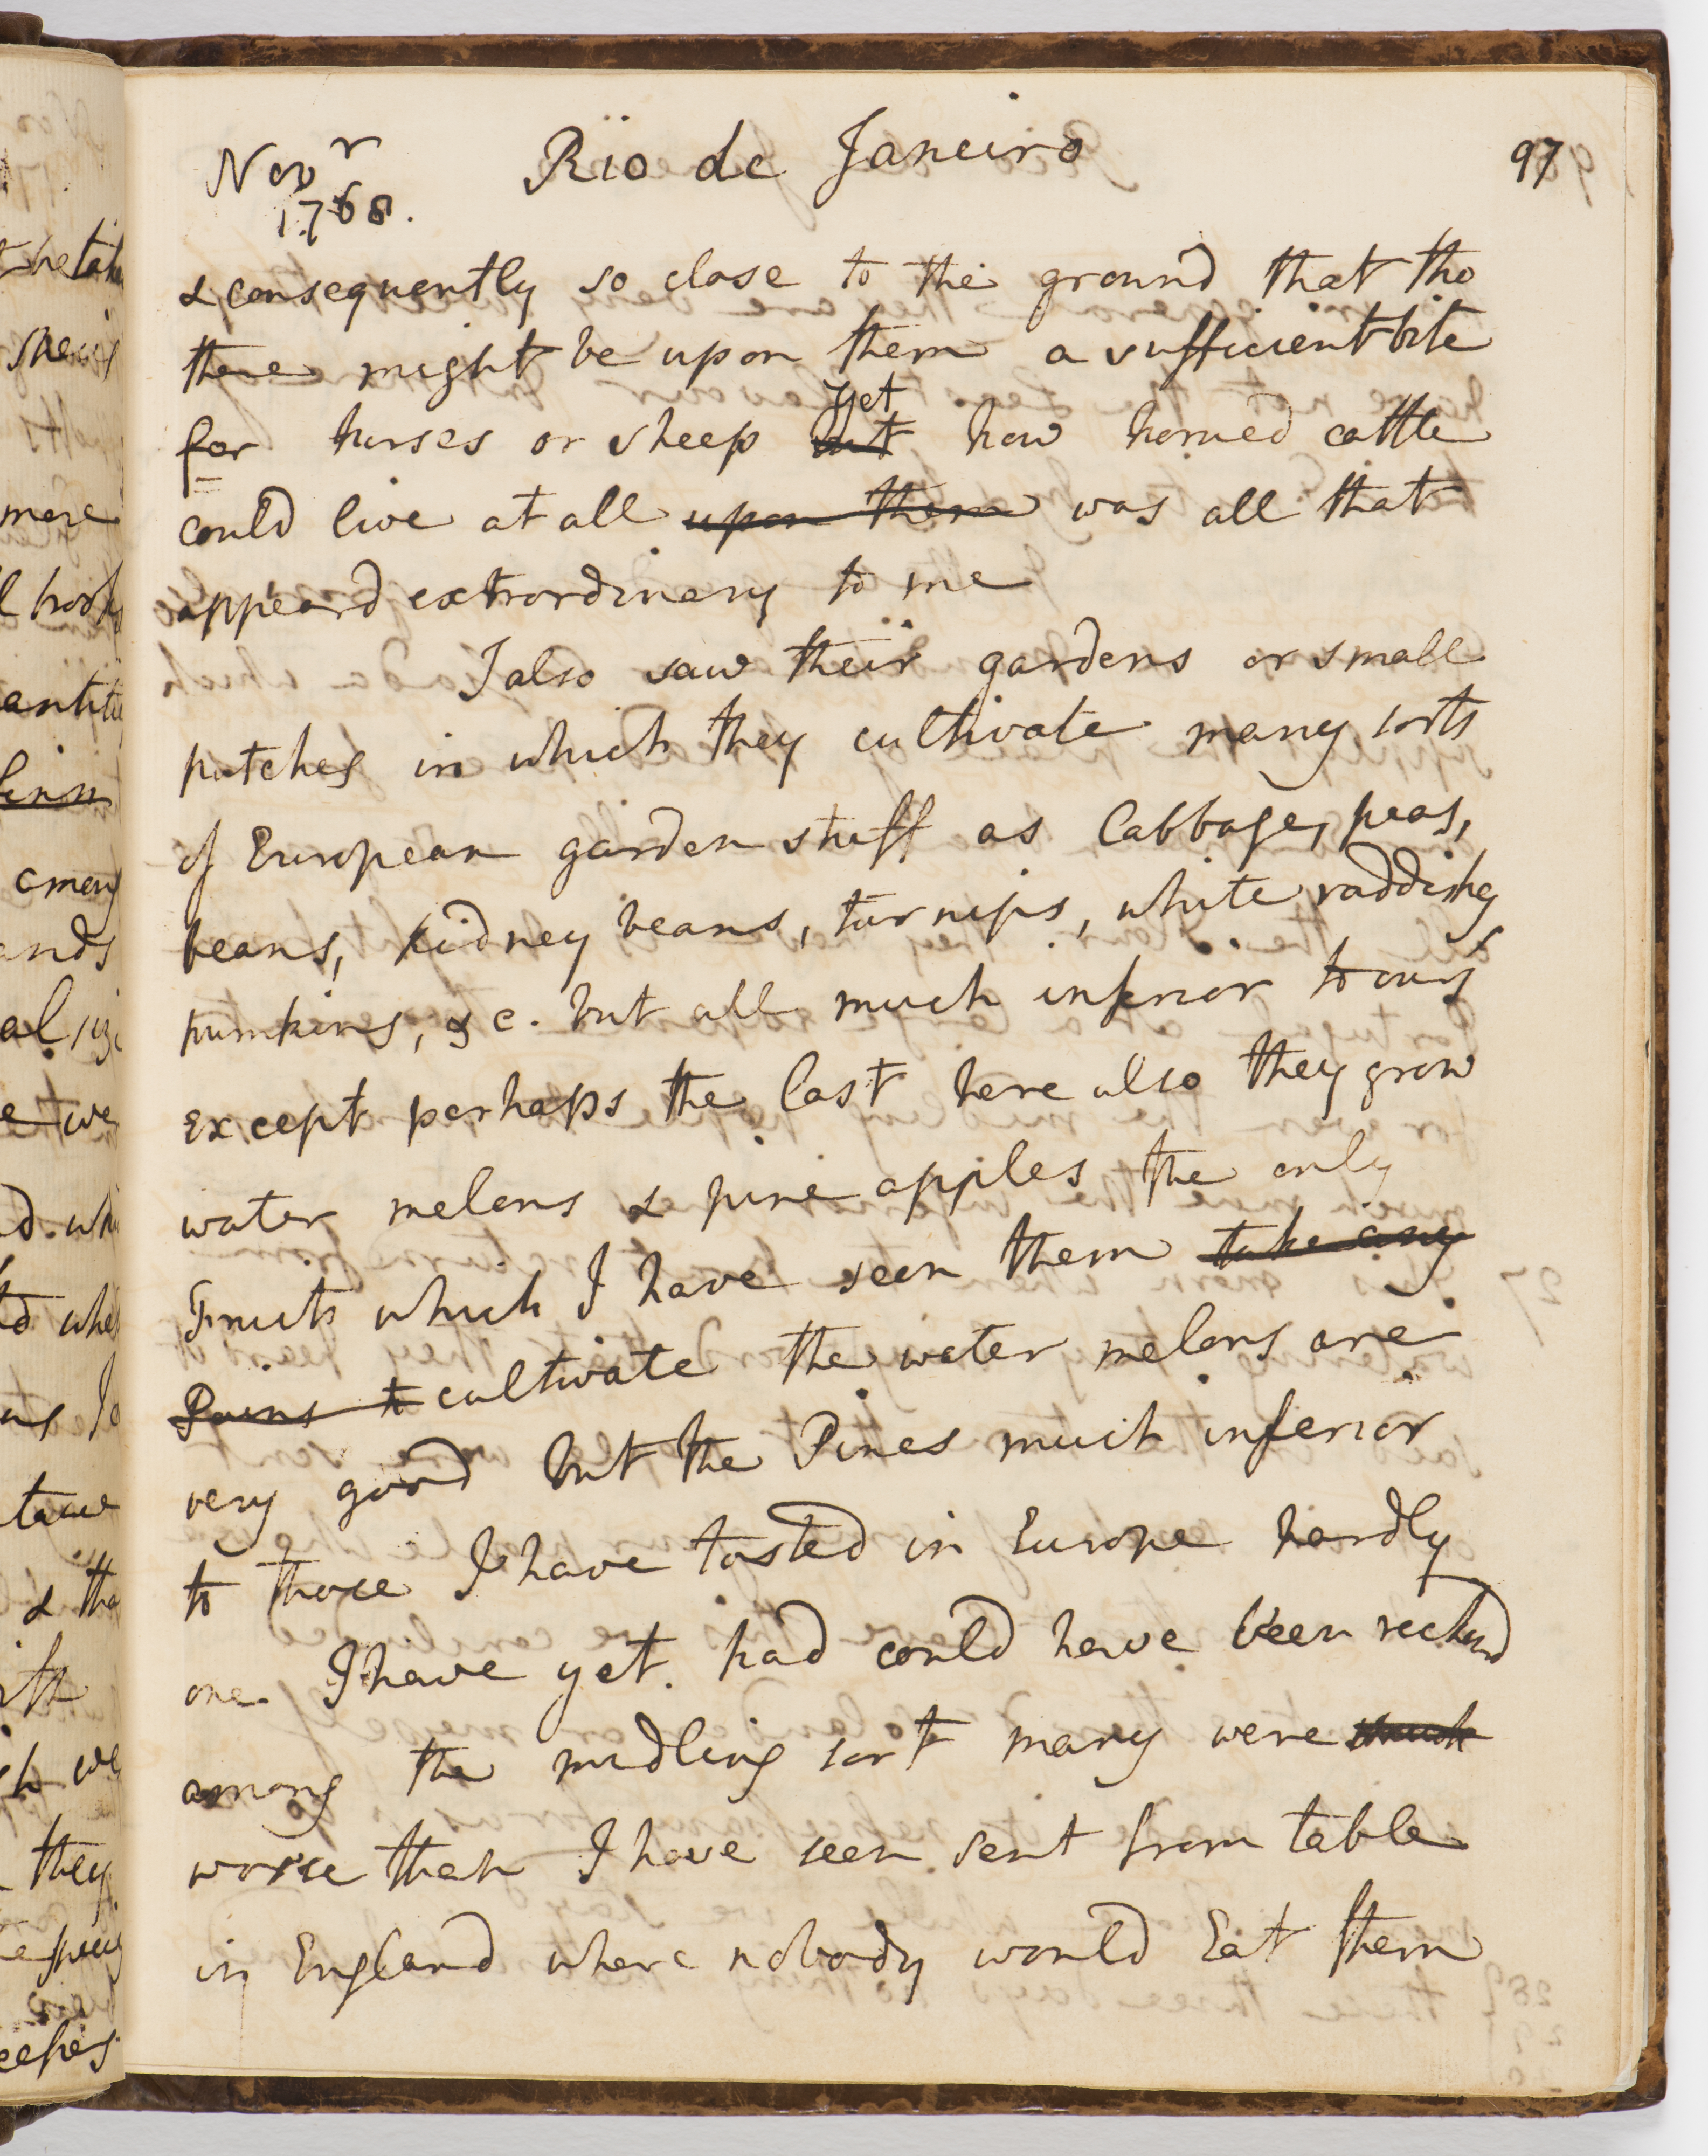 Novr 1768. Rio de Janeiro 97
& consequently so close to the ground that tho
there might be upon them a sufficient bite
for horses or sheep but yet how horned cattle
could live at all upon them was all that
appeard extrordinary to me
I also saw their gardens or small
patches in which they cultivate many sorts
of European garden stuff as Cabbage, peas,
beans, kidney beans, turnips, white raddishes
pumkins, &c. but all much inferior to ours
except perhaps the last here also they grow
water melons & pine apples the only
Fruits which I have seen them take any
Pains to cultivate the water melons are
very good but the Pines much inferior
to those I have tasted in Europe hardly
one I have yet had could have been reckend
among the midling sort many were much
worse than I have seen sent from table
in England where nobody would Eat them